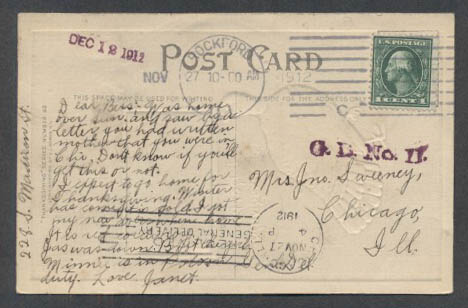 DEC 12 1912
POST CARD
ROCKFORD
NOV 27 10-00 AM 1912
U.S. POSTAGE
1 CENT 1
THIS SPACE MAY BE USED FOR WRITING
THE SIDE FOR THE ADDRESS ONLY
228 S. Madison St.
Dear Bess- Was home
over Sun. and saw by a
letter you had written
mother that you were in
Chi. Don't know if you'll
get this or not.
I expect to go home for
Thanksgiving. Winter
has come. I got
my new
It is
was down
Minnie is in
duty. Love Janet.
G. D. No. 11.
Mrs Jno. Sweeney,
Chicago,
Ill.
GENERAL DELIVERY
NOV 27
4 P
1912
Gen. Del.